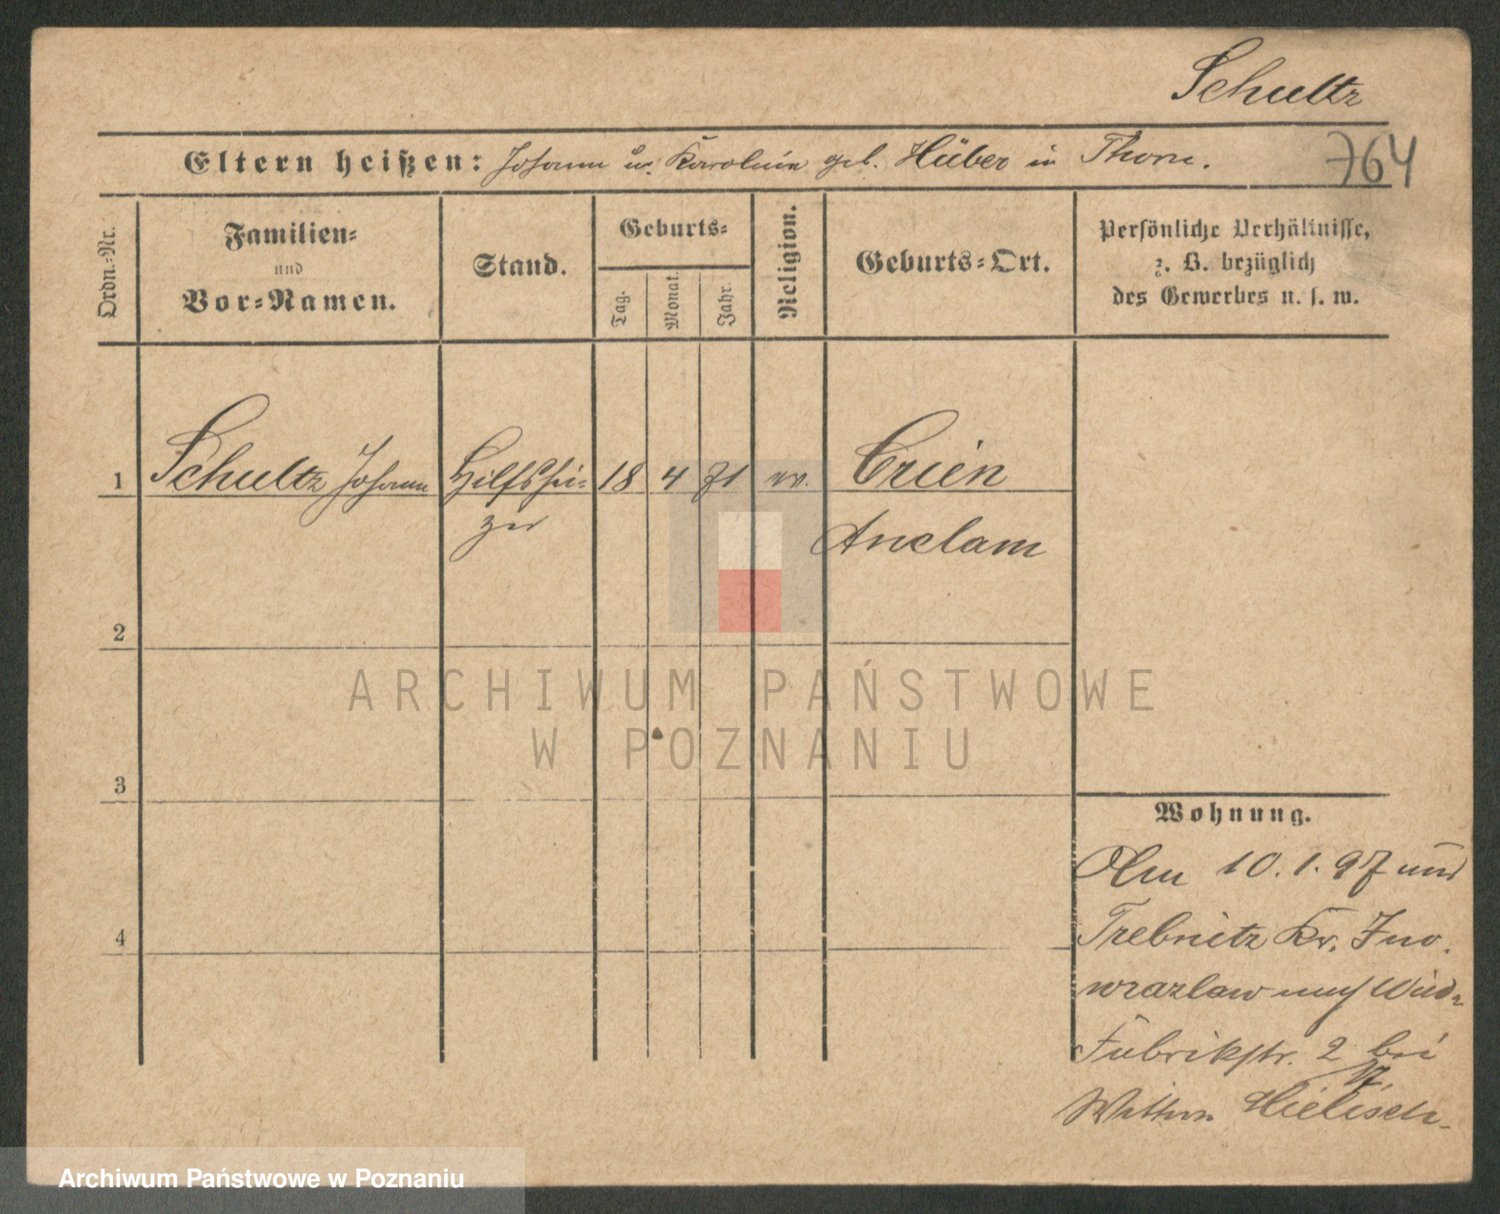 Schultz
764
Eltern heißen: Johann u. Karoline geb. Hüber in Thorn.
Ordn.-Nr.
Familien-
und
Vor-Namen.
Stand.
Geburts-
Tag.
Monat.
Jahr.
Religion.
Geburts-Ort.
Persönliche Verhältnisse,
z. B. bezüglich
des Gewerbes u. s. w.
1 Schultz Johann Hilfshei- 18 4 71 ev. Crien
zer Anclam
2
ARCHIWUM PAŃSTWOWE
W POZNANIU
3
Wohnung.
Am 10.1.97 von
4 Trebnitz Kr. Ino.
wrazlaw nach
Fabrikstr. 2 bei
17.
Wittwe
Archiwum Państwowe w Poznaniu